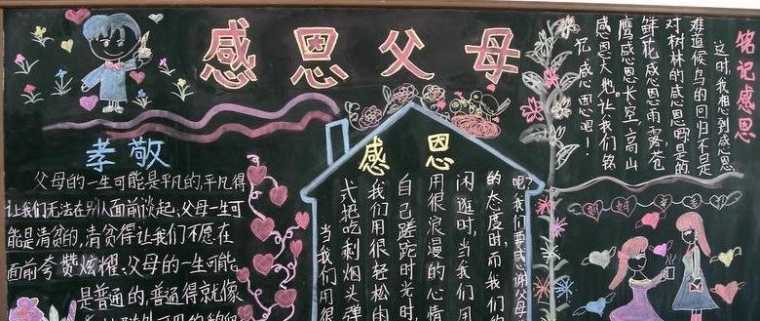 感恩父母
孝敬
父母的一生可能是平凡的,平凡得
让我们无法在别人面前谈起、父母一生可
能是清贫的,清贫得让我们不愿在
面前夸赞炫耀、父母的一生可能
是普通的,普通得就像
感恩
吧?我们要感谢父母
的态度时,而我们的
闲逛时,当我们用
用很浪漫的心情
自己蹉跎时光时,
我们用很轻松的
式把吃剩烟头弹
当我们用很
铭记感恩
这时,我想到感恩,
难道候鸟的回归不是
对树林的感恩吗?是的,
鲜花感恩雨露,苍
鹰感恩长空,高山
感恩大地。让我们铭
记感恩吧!